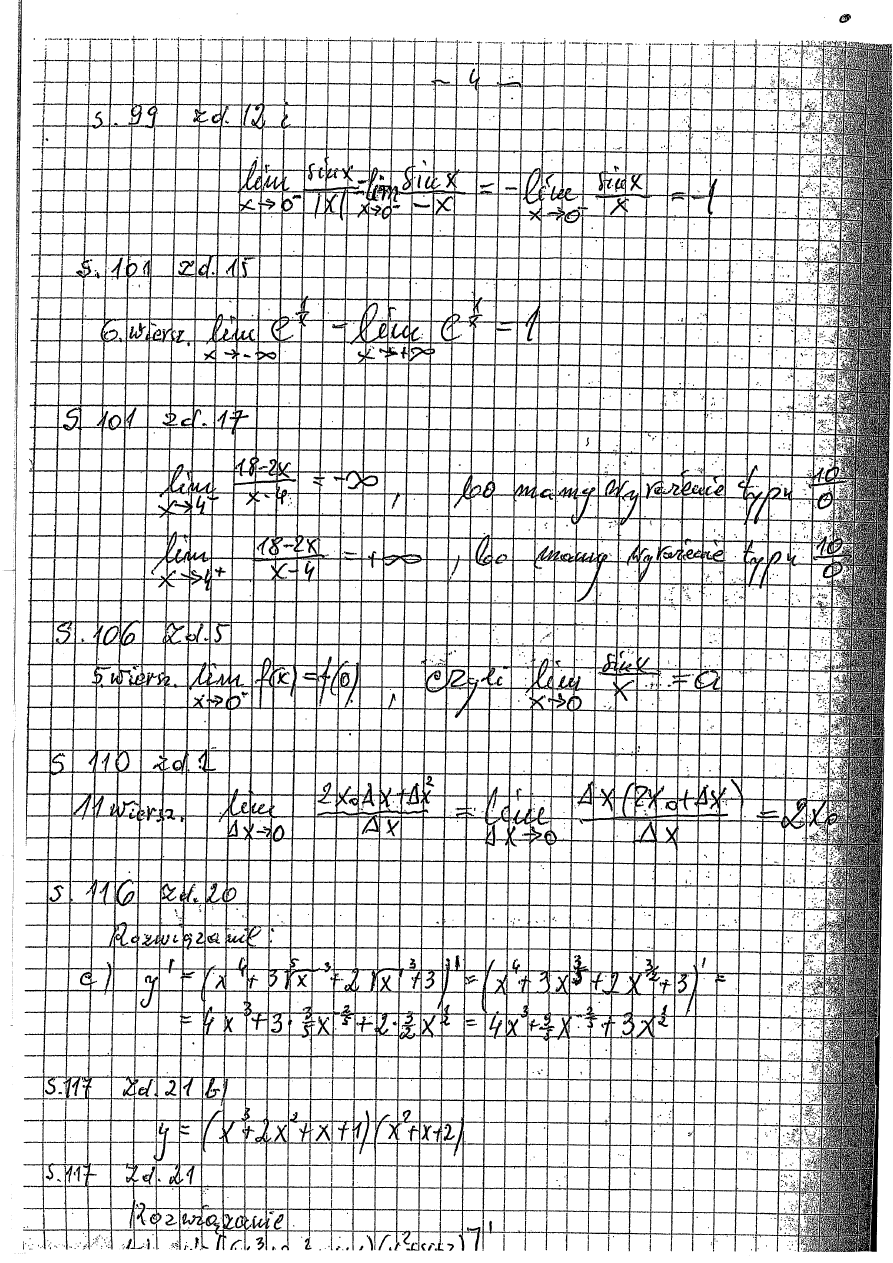 - 4 -
s. 99 zd. 12 i
lim x→0⁻ sinx/|x| = lim x→0⁻ sinx/-x = - lim x→0⁻ sinx/x = -1
s. 101 zd. 15
6. wiersz. lim x→-∞ e^(1/x) = lim x→+∞ e^(1/x) = 1
S 101 zd. 17
lim x→4⁻ 18-2x/x-4 = -∞ , bo mamy wyrażenie typu 10/0
lim x→4⁺ 18-2x/x-4 = +∞ , bo mamy wyrażenie typu 10/0
S. 106 zd. 5
5 wiersz. lim x→0⁻ f(x) = f(0) , czyli lim x→0 sinx/x = a
S 110 zd 1
11 wiersz. lim Δx→0 2x₀Δx+Δx²/Δx = lim Δx→0 Δx(2x₀+Δx)/Δx = 2x₀
s. 116 zd. 20
Rozwiązanie:
c) y' = (x⁴ + 3 ⁵√x³ + 2 √x³ + 3)' = (x⁴ + 3x^(3/5) + 2x^(3/2) + 3)' =
= 4x³ + 3·3/5 x^(-2/5) + 2·3/2 x^(1/2) = 4x³ + 9/5 x^(-2/5) + 3x^(1/2)
s. 117 zd. 21 b)
y = (x³+2x²+x+1)(x²+x+2)
s. 117 zd. 21
Rozwiązanie